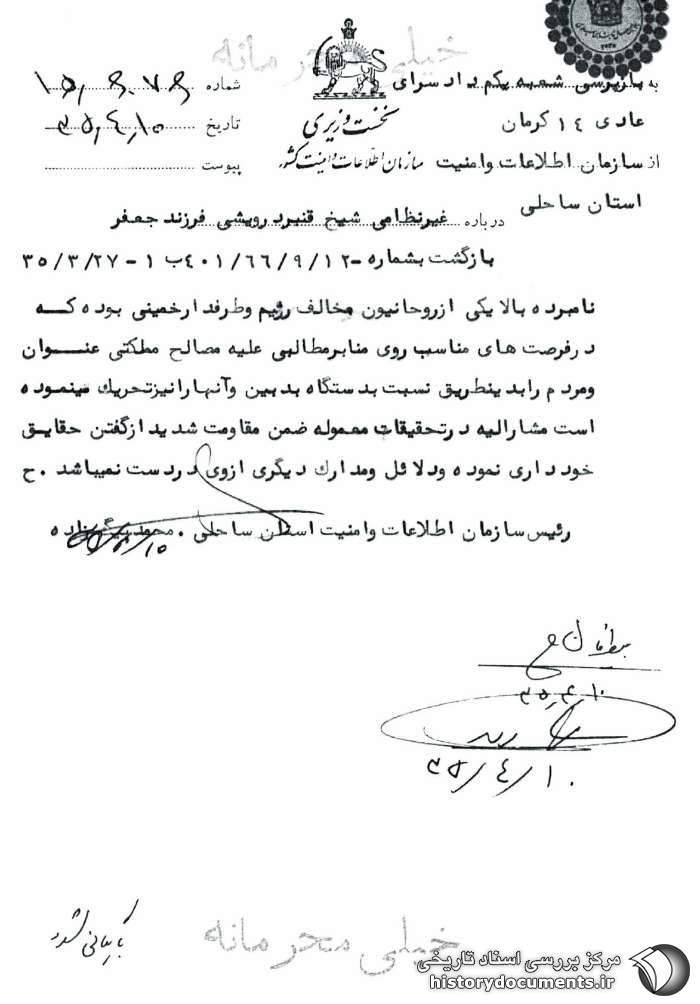 خیلی محرمانه
به بازپرسی شعبه یکم دادسرای
عادی ١٤ کرمان
از سازمان اطلاعات وامنیت
استان ساحلی
نخست وزیری
سازمان اطلاعات وامنیت کشور
شماره
تاریخ ٣٥٫٤٫١٠
پیوست
درباره غیرنظامی شیخ قنبردرویشی فرزند جعفر
بازگشت بشماره –٤٠١/٦٦/٩/١٢ب ١ – ٣٥/٣/٢٧
نامبرده بالا یکی ازروحانیون مخالف رژیم وطرفدارخمینی بوده که
درفرصت های مناسب روی منابرمطالبی علیه مصالح مملکتی عنوان
ومردم رابدینطریق نسبت بدستگاه بدبین وآنهارانیزتحریک مینموده
است مشارالیه درتحقیقات معموله ضمن مقاومت شدید ازگفتن حقایق
خودداری نموده ودلائل ومدارک دیگری ازوی دردست نمیباشد .ح
رئیس سازمان اطلاعات وامنیت استان ساحلی .
٣٥٫٤٫١٠
٣٥/٤/١٠
بایگانی شود
خیلی محرمانه
مرکز بررسی اسناد تاریخی
historydocuments.ir